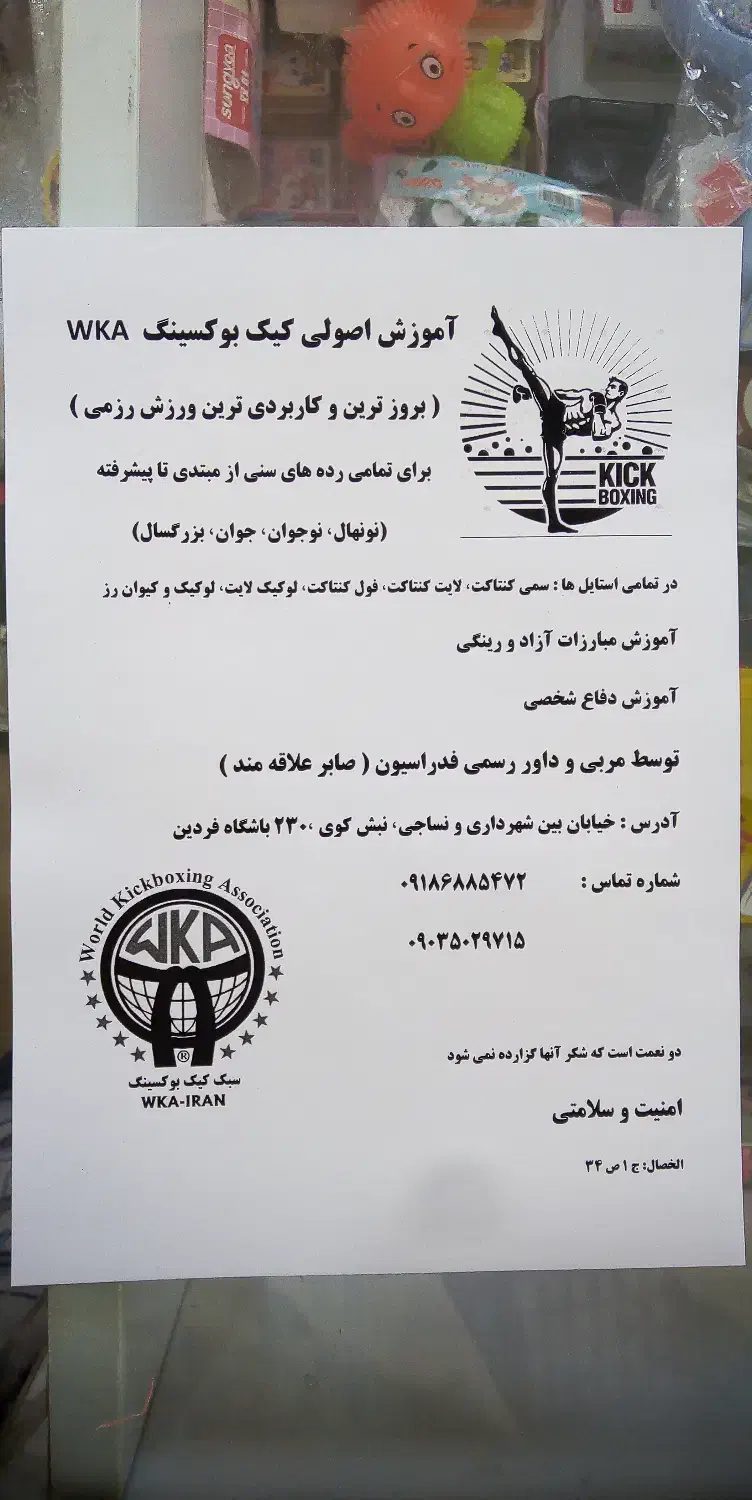 sunayea
آموزش اصولی کیک بوکسینگ WKA
( بروز ترین و کاربردی ترین ورزش رزمی )
برای تمامی رده های سنی از مبتدی تا پیشرفته
(نونهال، نوجوان، جوان، بزرگسال)
KICK
BOXING
در تمامی استایل ها : سمی کنتاکت، لایت کنتاکت، فول کنتاکت، لوکیک لایت، لوکیک و کیوان رز
آموزش مبارزات آزاد و رینگی
آموزش دفاع شخصی
توسط مربی و داور رسمی فدراسیون ( صابر علاقه مند )
آدرس : خیابان بین شهرداری و نساجی، نبش کوی ۲۳۰، باشگاه فردین
شماره تماس : ۰۹۱۸۶۸۸۵۴۷۲
۰۹۰۳۵۰۲۹۷۱۵
World Kickboxing Association
WKA
®
سبک کیک بوکسینگ
WKA-IRAN
دو نعمت است که شکر آنها گزارده نمی شود
امنیت و سلامتی
الخصال: ج ۱ ص ۳۴